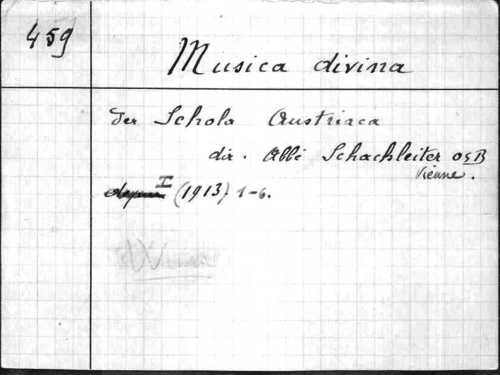 459
Musica divina
der Schola Austriaca
dir. Abbé Schachleiter OSB
Vienne.
I (1913) 1-6.